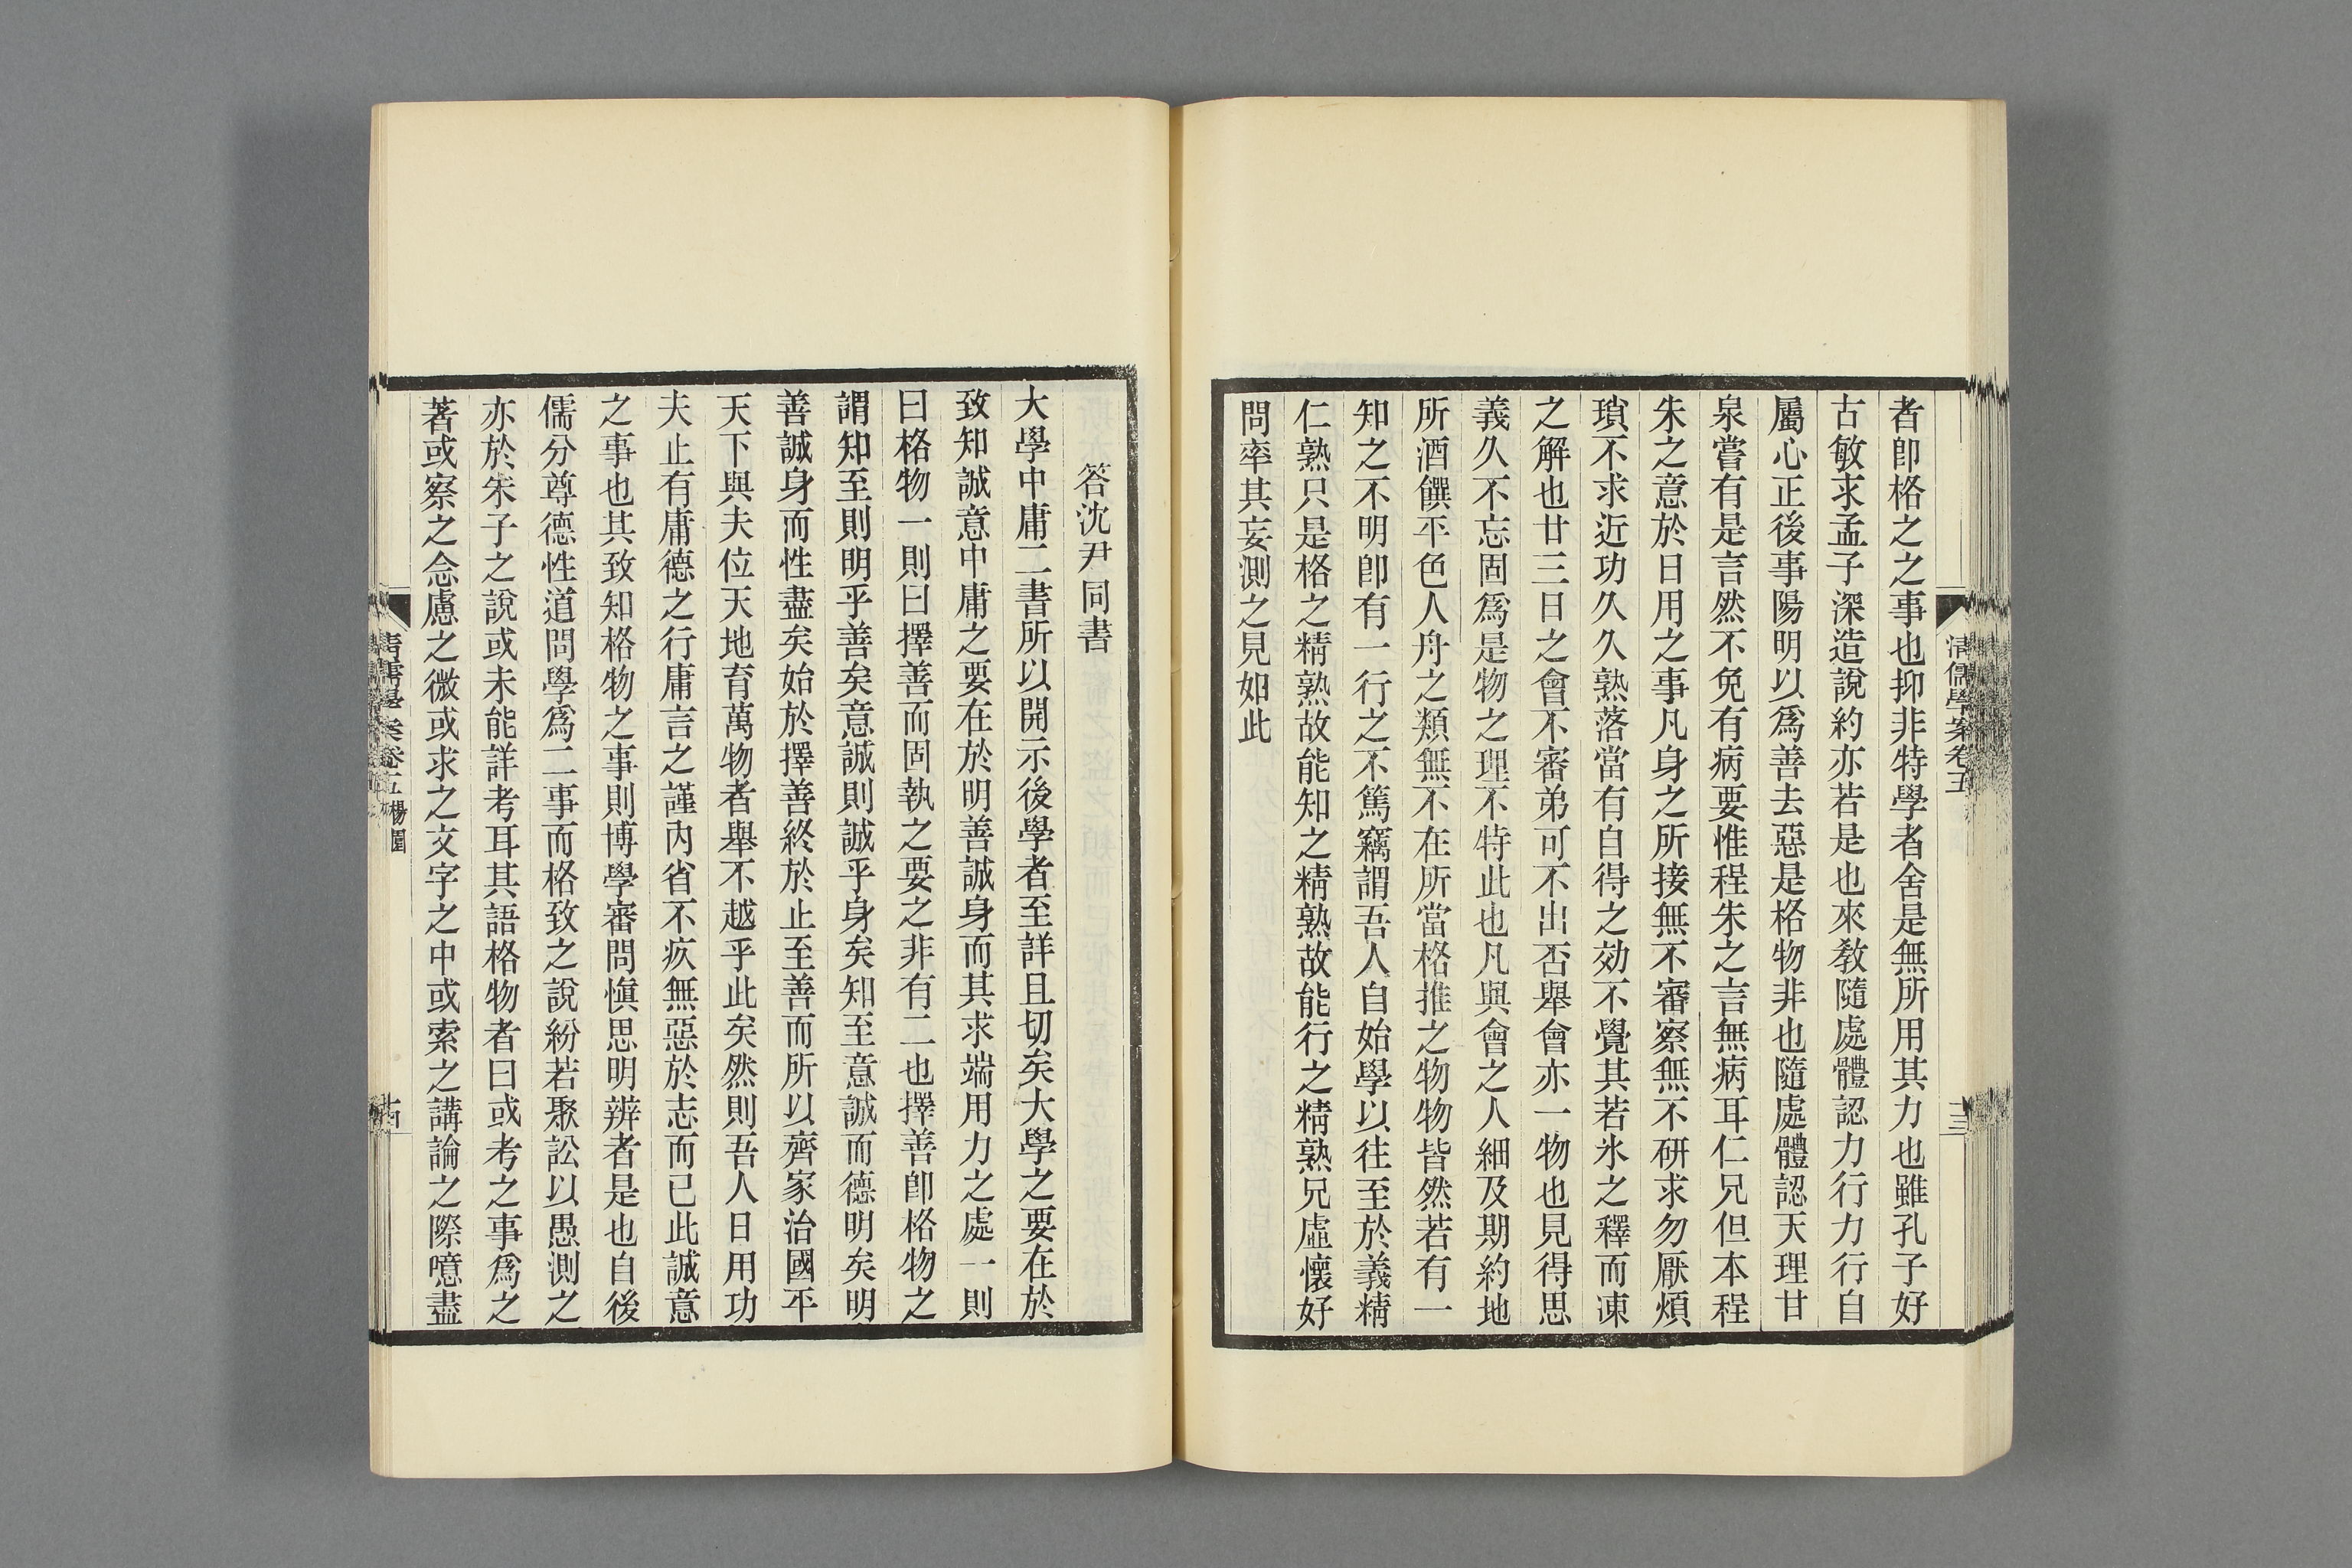 者卽格之之事也抑非特學者舍是無所用其力也雖孔子好
古敏求孟子深造說約亦若是也來教隨處體認力行力行自
屬心正後事陽明以爲善去惡是格物非也隨處體認天理甘
泉嘗有是言然不免有病要惟程朱之言無病耳仁兄但本程
朱之意於日用之事凡身之所接無不審察無不研求勿厭煩
瑣不求近功久久熟落當有自得之効不覺其若氷之釋而凍
之解也廿三日之會不審弟可不出否舉會亦一物也見得思
義久不忘固爲是物之理不特此也凡與會之人細及期約地
所酒饌平色人舟之類無不在所當格推之物物皆然若有一
知之不明卽有一行之不篤竊謂吾人自始學以往至於義精
仁熟只是格之精熟故能知之精熟故能行之精熟兄虛懷好
問率其妄測之見如此
清儒學案卷五
答沈尹同書
大學中庸二書所以開示後學者至詳且切矣大學之要在於
致知誠意中庸之要在於明善誠身而其求端用力之處一則
曰格物一則曰擇善而固執之要之非有二也擇善卽格物之
謂知至則明乎善矣意誠則誠乎身矣知至意誠而德明矣明
善誠身而性盡矣始於擇善終於止至善而所以齊家治國平
天下與夫位天地育萬物者舉不越乎此矣然則吾人日用功
夫止有庸德之行庸言之謹內省不疚無惡於志而已此誠意
之事也其致知格物之事則博學審問愼思明辨者是也自後
儒分尊德性道問學爲二事而格致之說紛若聚訟以愚測之
亦於朱子之說或未能詳考耳其語格物者曰或考之事爲之
著或察之念慮之微或求之文字之中或索之講論之際噫盡
清儒學案卷五 楊園